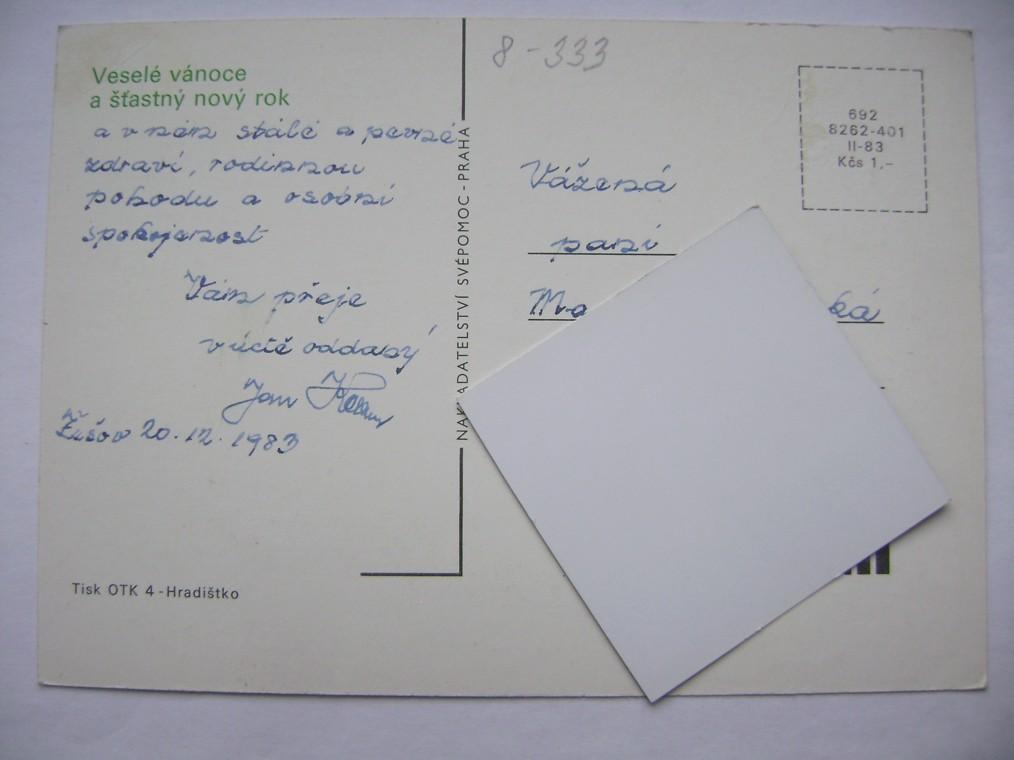 Veselé vánoce
a šťastný nový rok
a v něm stálé a pevné
zdraví, rodinnou
pohodu a osobní
spokojenost
Vám přeje
v úctě oddaný
Jan
20.12.1983
Tisk OTK 4-Hradištko
NAKLADATELSTVÍ SVÉPOMOC - PRAHA
8-333
692
8262-401
II-83
Kčs 1,-
Vážená
paní